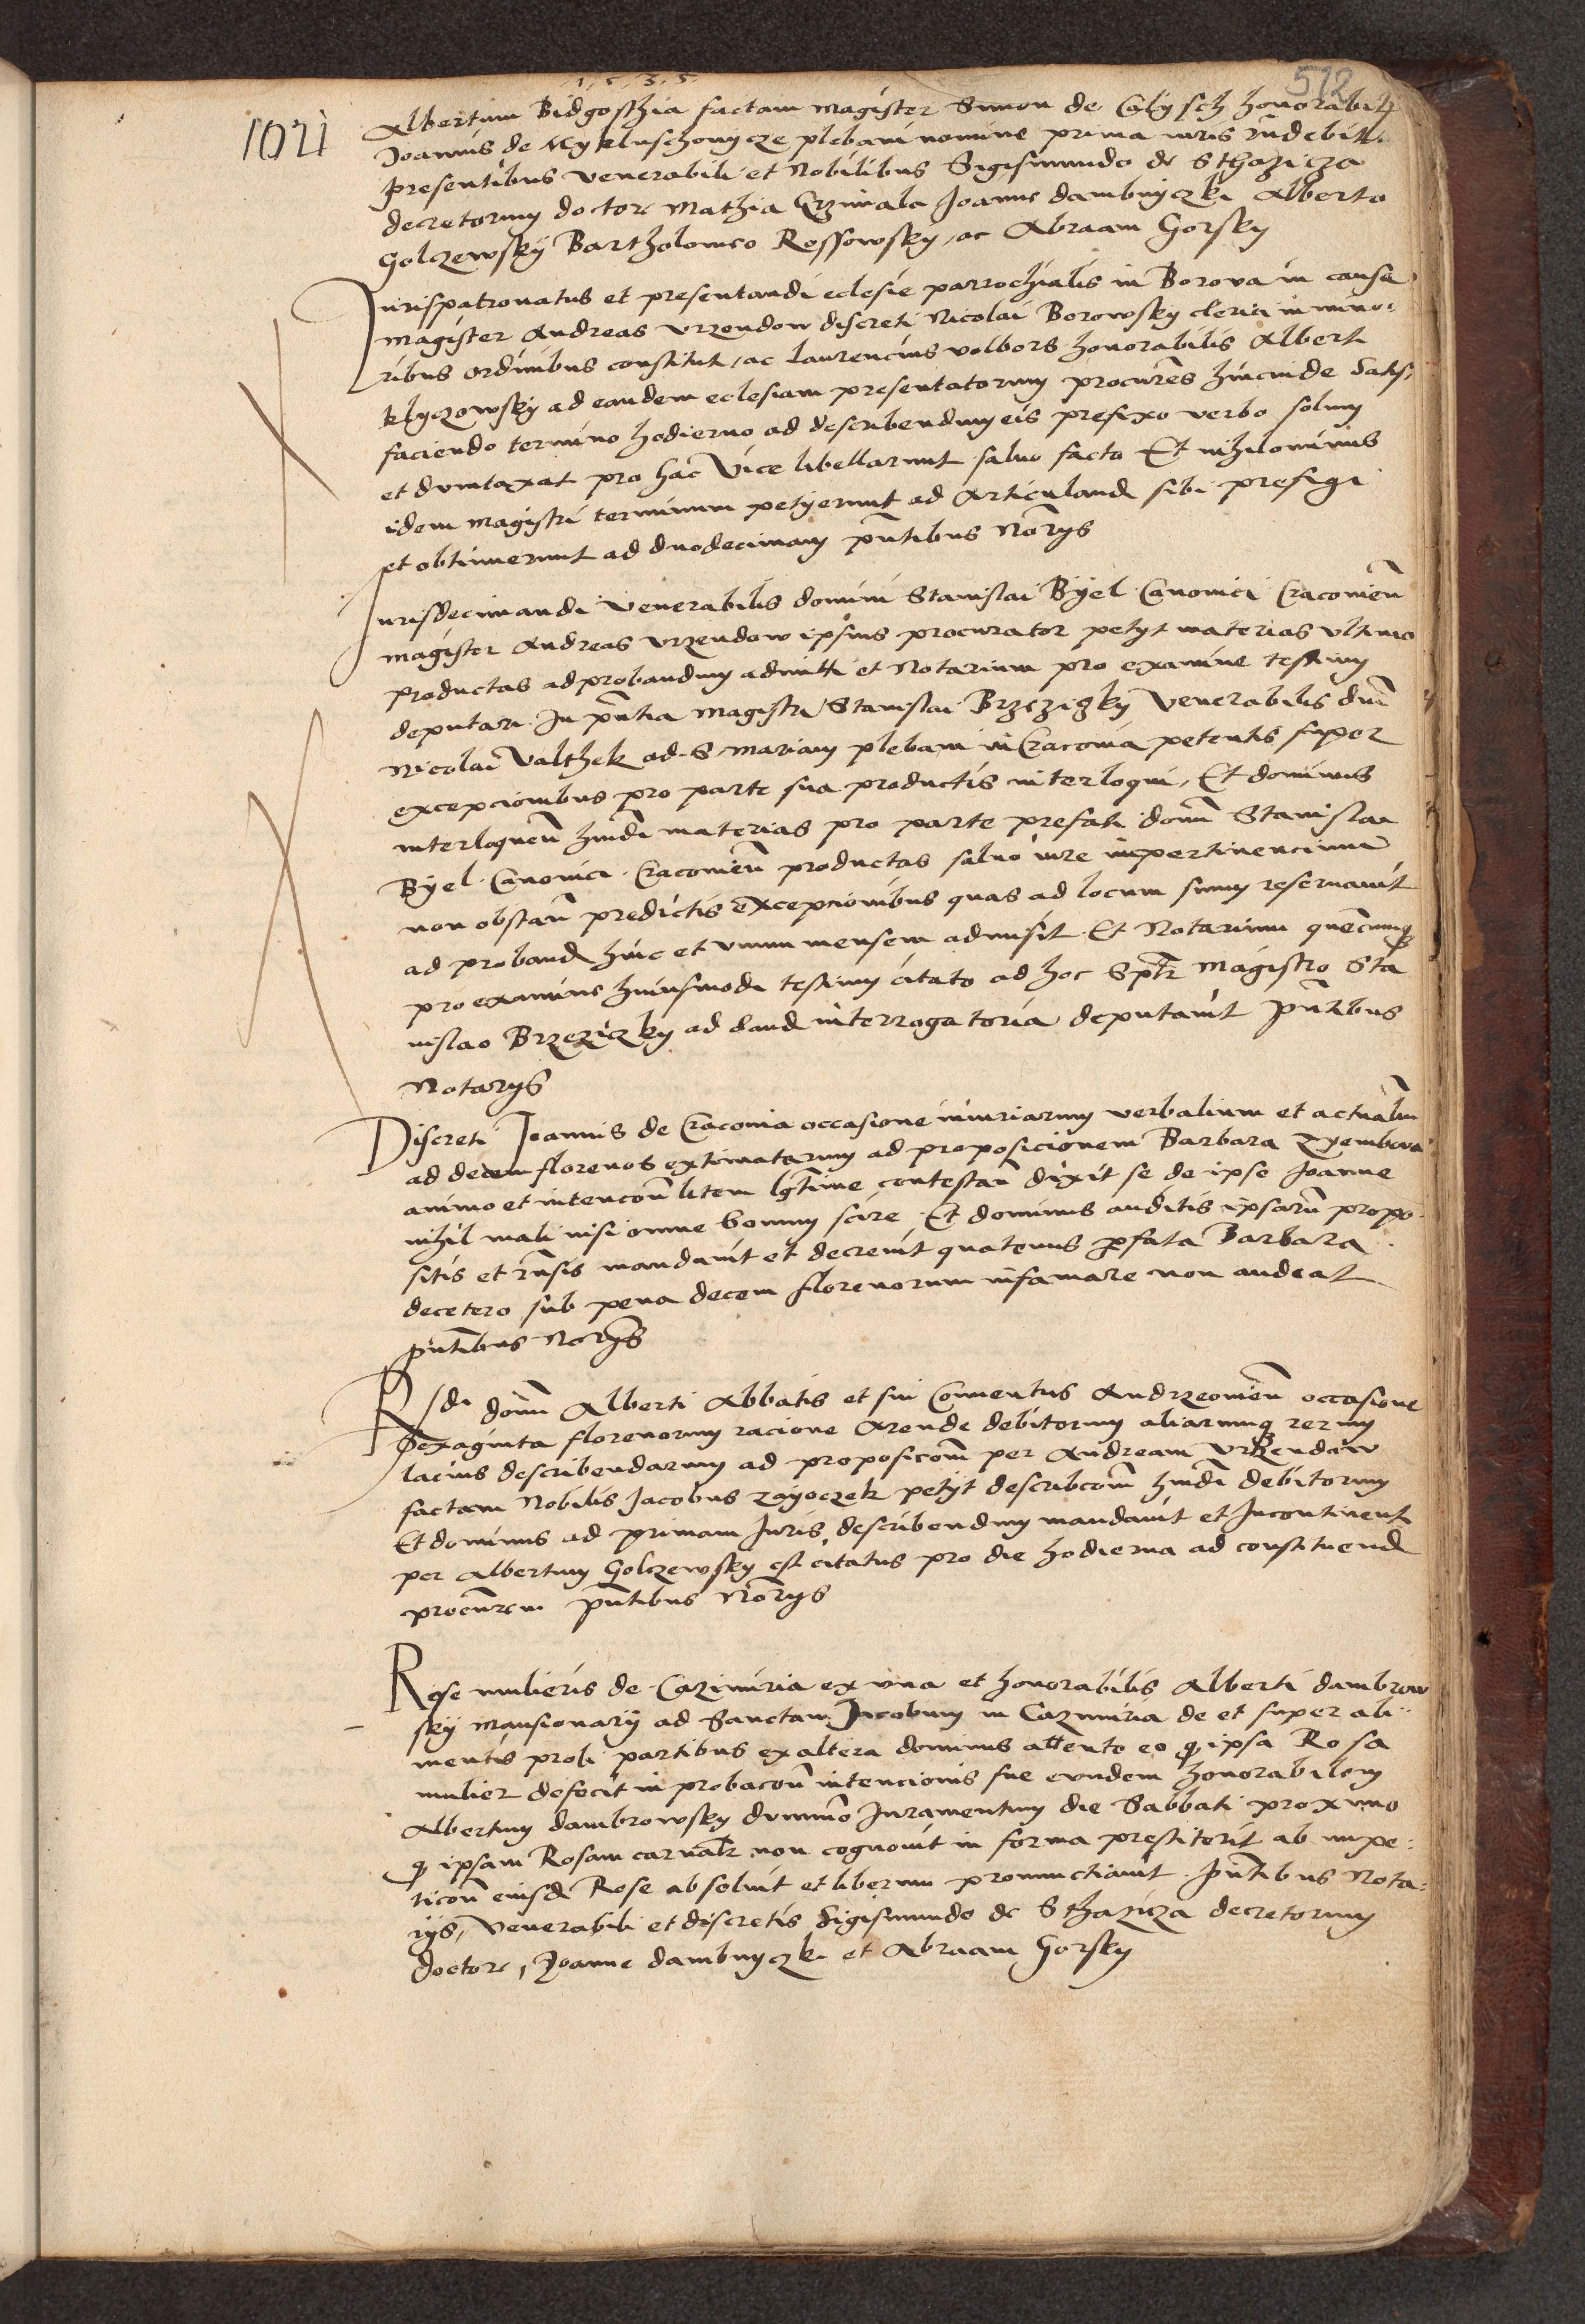 1.5.3.5.
512
1021
Albertum Bidgosthia factam magister Simon de Calysch honorabilis
Joannis de Mykluschowycze plebani nomine prima iuris rñdebit
presentibus venerabili et Nobilibus Sigismundo de Sthazicza
decretorum doctore Mathia Joanne dambnyczki Alberto
Golczewsky Bartholomeo Rossowsky, ac Abraam Gorsky
Jurispatronatus et presentandi eclesie parrochialis in Borova in causa
magister Andreas vrzendow discreti Nicolai Borowsky clerici in mino-
ribus ordinibus constitut, ac laurencius volbors honorabilis Alberti
klyczowsky ad eandem eclesiam presentatorum procures hincinde satis-
faciendo termino hodierno ad describendum eis prefixo verbo solum
et dumtaxat pro hac vice libellarunt saluo facto Et nihilominus
idem magistri terminum petyerunt ad articuland sibi prefigi
et obtinuerunt ad duodecimam pñtibus Norys
Jurisdecimandi venerabilis domini Stanislai Byel Canonici Cracovieñ
magister Andreas vrzendow ipsius procurator petyt materias vltimo
productas ad probandum admitti et Notarium pro examine testium
deputari In pñtia magistri Stanislai Brzeziczky venerabilis dnī
Nicolai Valthek ad S mariam plebani in Cracovia petentis super
excepcionibus pro parte sua productis interloqui, Et dominus
interloqueñ hmōi materias pro parte prefati domī Stanislai
Byel Canonici Cracovieñ productas saluo iure impertinencium
non obstañ predictis excepcionibus quas ad locum suum reseruauit
ad proband hinc et vnum mensem admisit Et Notarium quemcumq
pro examine huiusmodi testium citato ad hoc Spltr magistro Sta
nislao Brzeziczky ad dand interrogatoria deputauit pñtibus
Notarys
Discreti Joannis de Cracovia occasione iniuriarum verbalium et actualiu
ad decem florenos extimatarum ad proposicionem Barbara zyembova
animo et intencōn litem lgtime contestañ dixit se de ipso Joanne
nihil mali nisi omne bonum scire Et dominus auditis ipsarū propo-
sitis et rñsis mandauit et decreuit quatenus pfata Barbara
decetero sub pena decem florenorum infamare non audeat
pñtibus Norys
Rsdi domī Alberti Abbatis et sui Conuentus Andrzeovieñ occasione
sexaginta florenorum racione Arende debitorum aliarumq rerum
lacius describendarum ad proposicoñ per Andream vrzendow
factam Nobilis Jacobus zayoczek petyt describcoñ hmōi debitorum
Et dominus ad primam Juris describendum mandauit et Incontinent
per Albertum Golczewsky est citatus pro die hodierna ad constituend
procurem pñtibus Norys
Rose mulieris de Cazimiria ex vna et honorabilis Alberti dambrow
sky mansionary ad Sanctam Jacobum in Cazimiria de et super ali-
mentis proli partibus ex altera dominus attento eo q ipsa Rosa
mulier defecit in probacoñ intencionis sue eundem honorabilem
Albertum dambrowsky dummo Juramentum die Sabbati proximo
q ipsam Rosam carnalr non cognouit in forma prestiterit ab impe-
ticoñ eiusd Rose absoluit et liberum pronunctiauit pñtibus Nota-
rys, venerabili et discretis Sigismundo de Sthazicza decretorum
doctore, Joanne dambnyczki et Abraam Gorsky